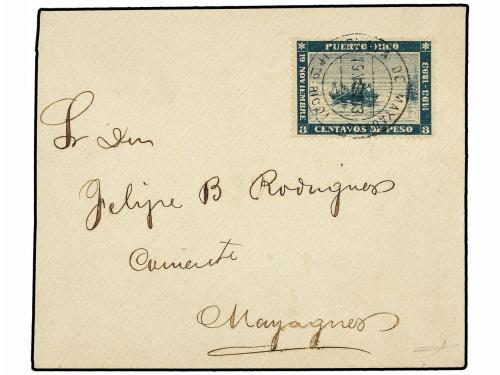 PUERTO-RICO
19 NOVIEMBRE
1493-1893
3 CENTAVOS DE PESO 3
DE MAYAG
Sr Don
Felipe B Rodrigues
Comerte
Mayagues